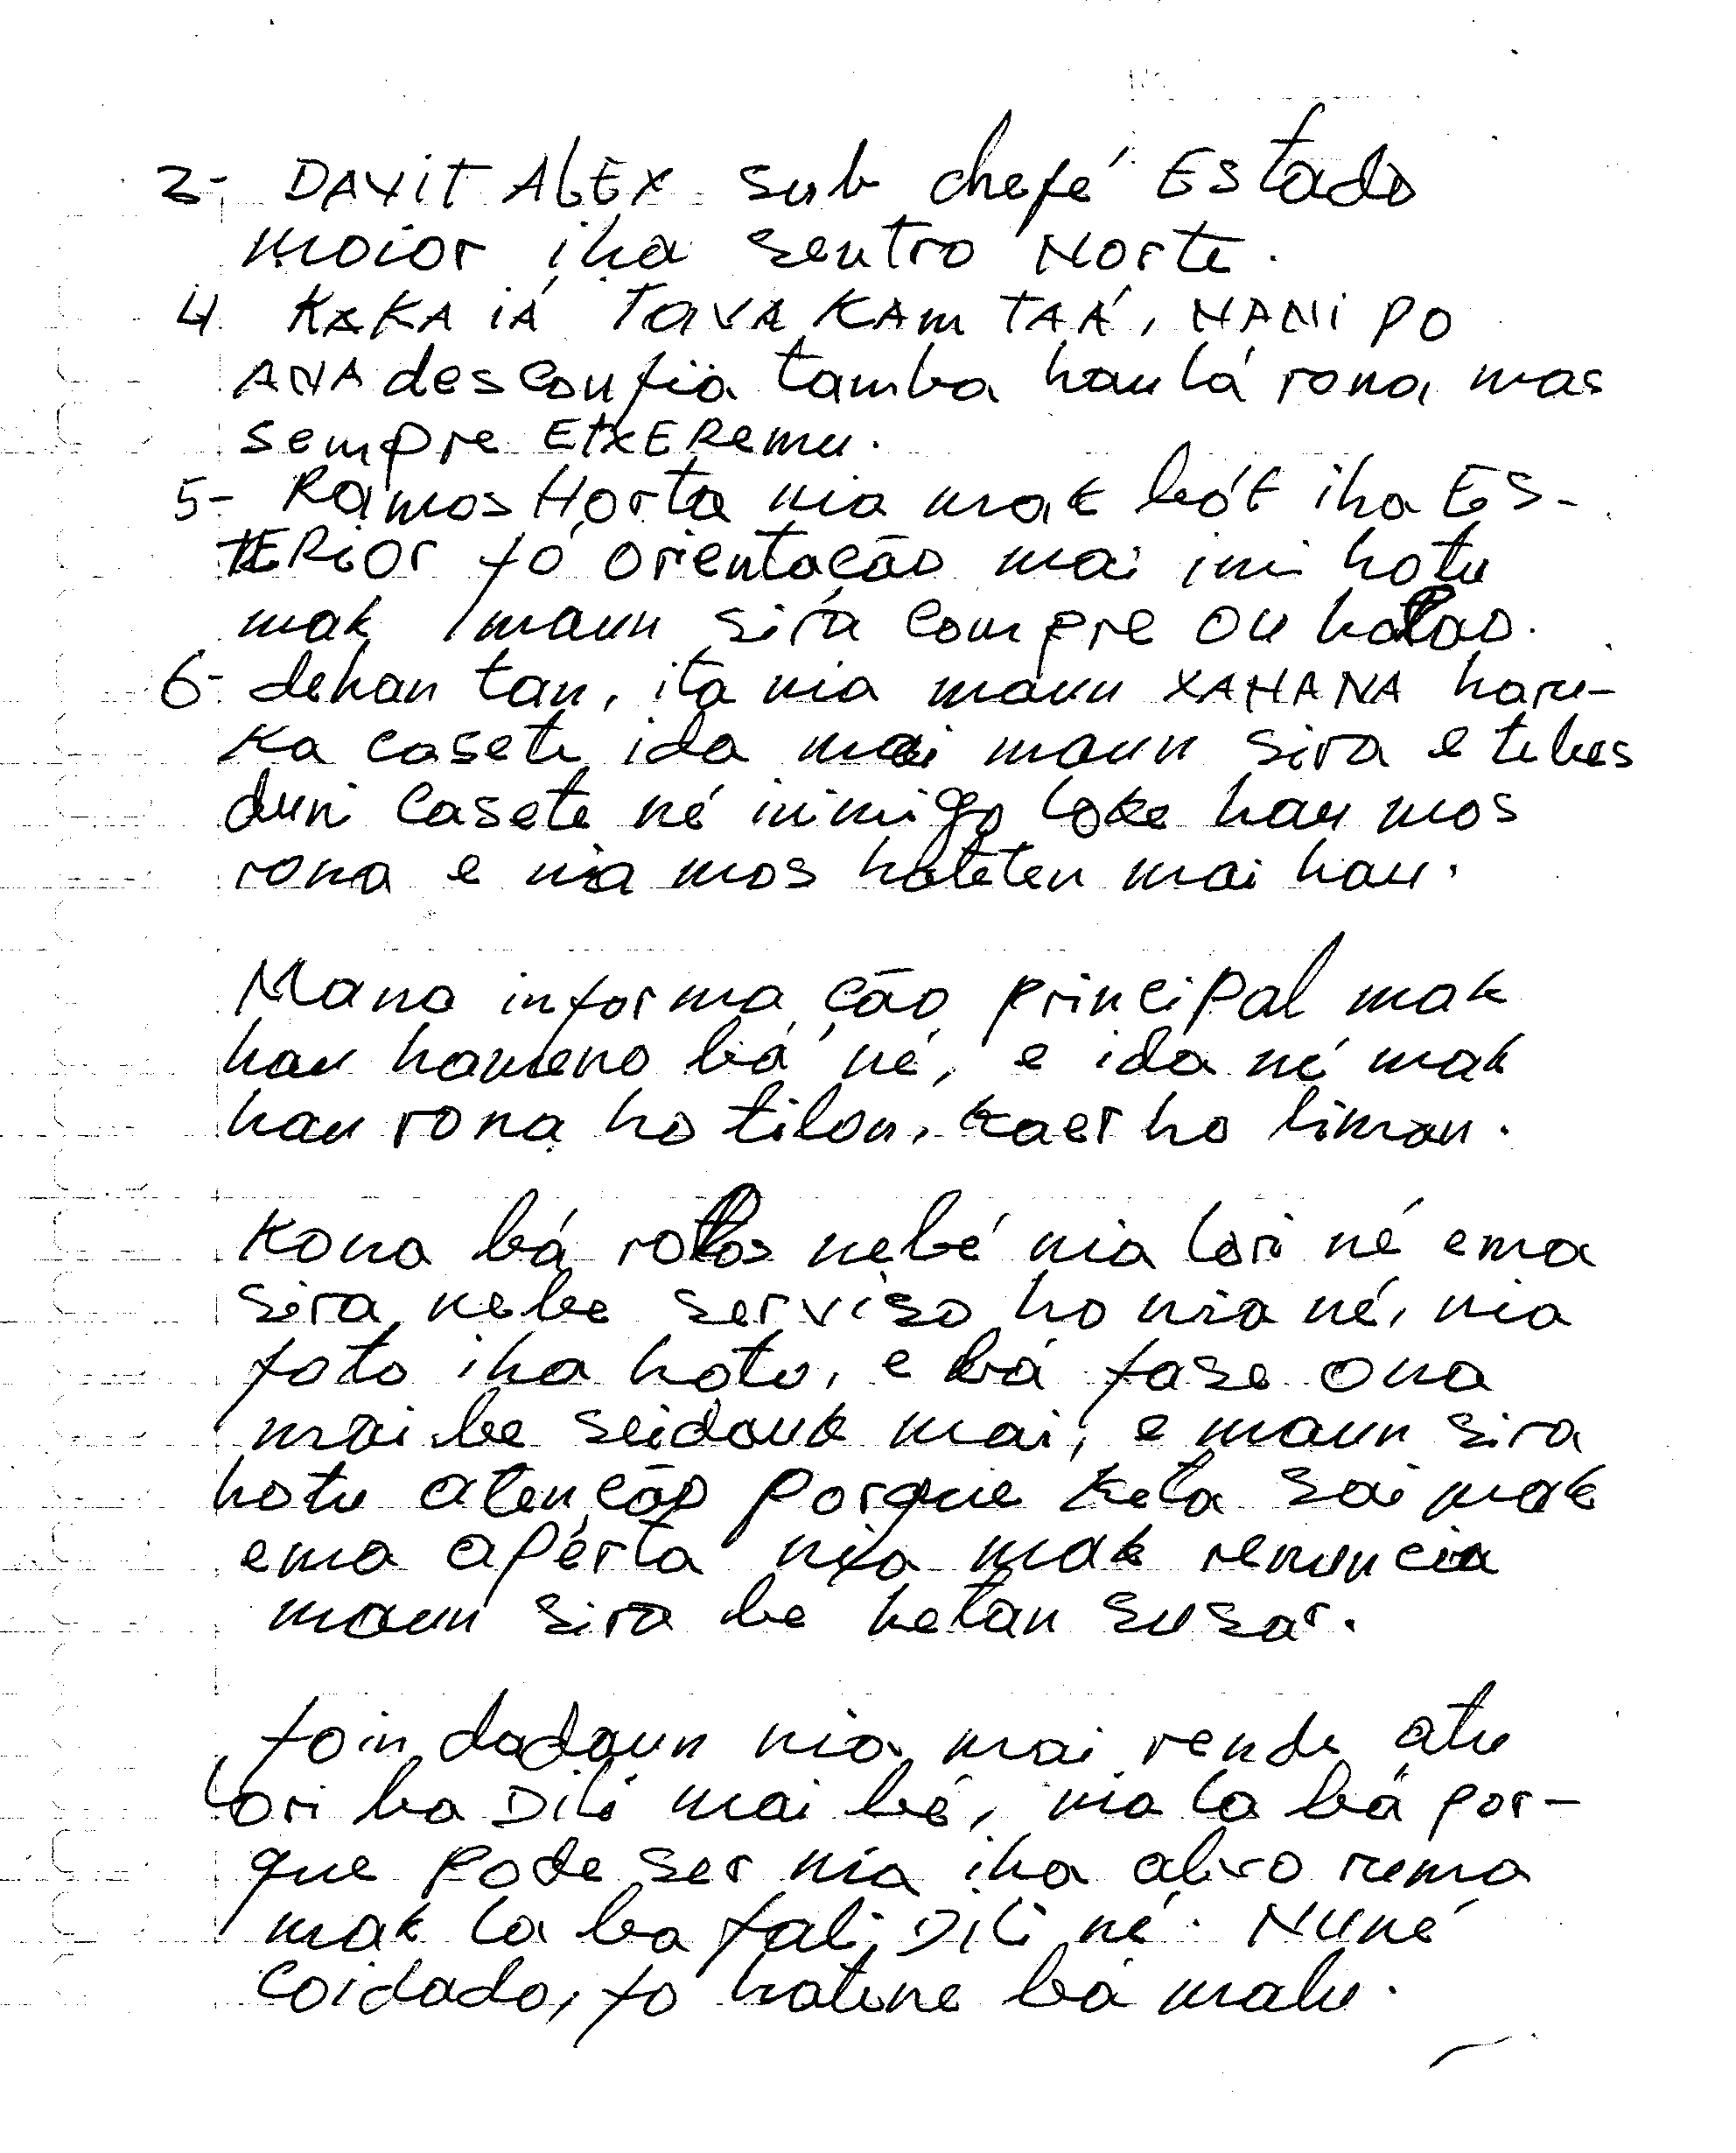 3- DAVIT ALEX sub chefé Estado
moior iha sentro Norte.
4 KAKA IÁ TAVA KAM TAÁ, NANI PO
ANA desconfia tamba hau lá rona, mas
sempre EtxERemu.
5- Ramos Horta nia mak bót iha ES-
TERior fó orientação mai imi hotu
mak maun sira compre ou halao.
6- dehan tan, ita nia maun XANANA haru-
ka casete ida mai maun sira e tebes
duni casete né inimigo loke hau mos
rona e nia mos hateten mai hau.
Mana informação principal mak
hau hameno bá né, e ida né mak
hau rona ho tilon, kaer ho liman.
Kona bá rollos nebé nia lori né ema
sira nebe serviso ho nia né, nia
foto iha hotu, e bá fase ona
mai be seidauk mai, e maun sira
hotu atenção porque keta sai mak
ema apérta nia mak renuncia
maun sira be hetan susar.
foin dadaun nia mai rende atu
lori ba Dili mai bé, nia la bá por-
que pode ser nia iha alvo ruma
mak la ba fali Dili né. Nuné
coidado, fo hatene bá malu.